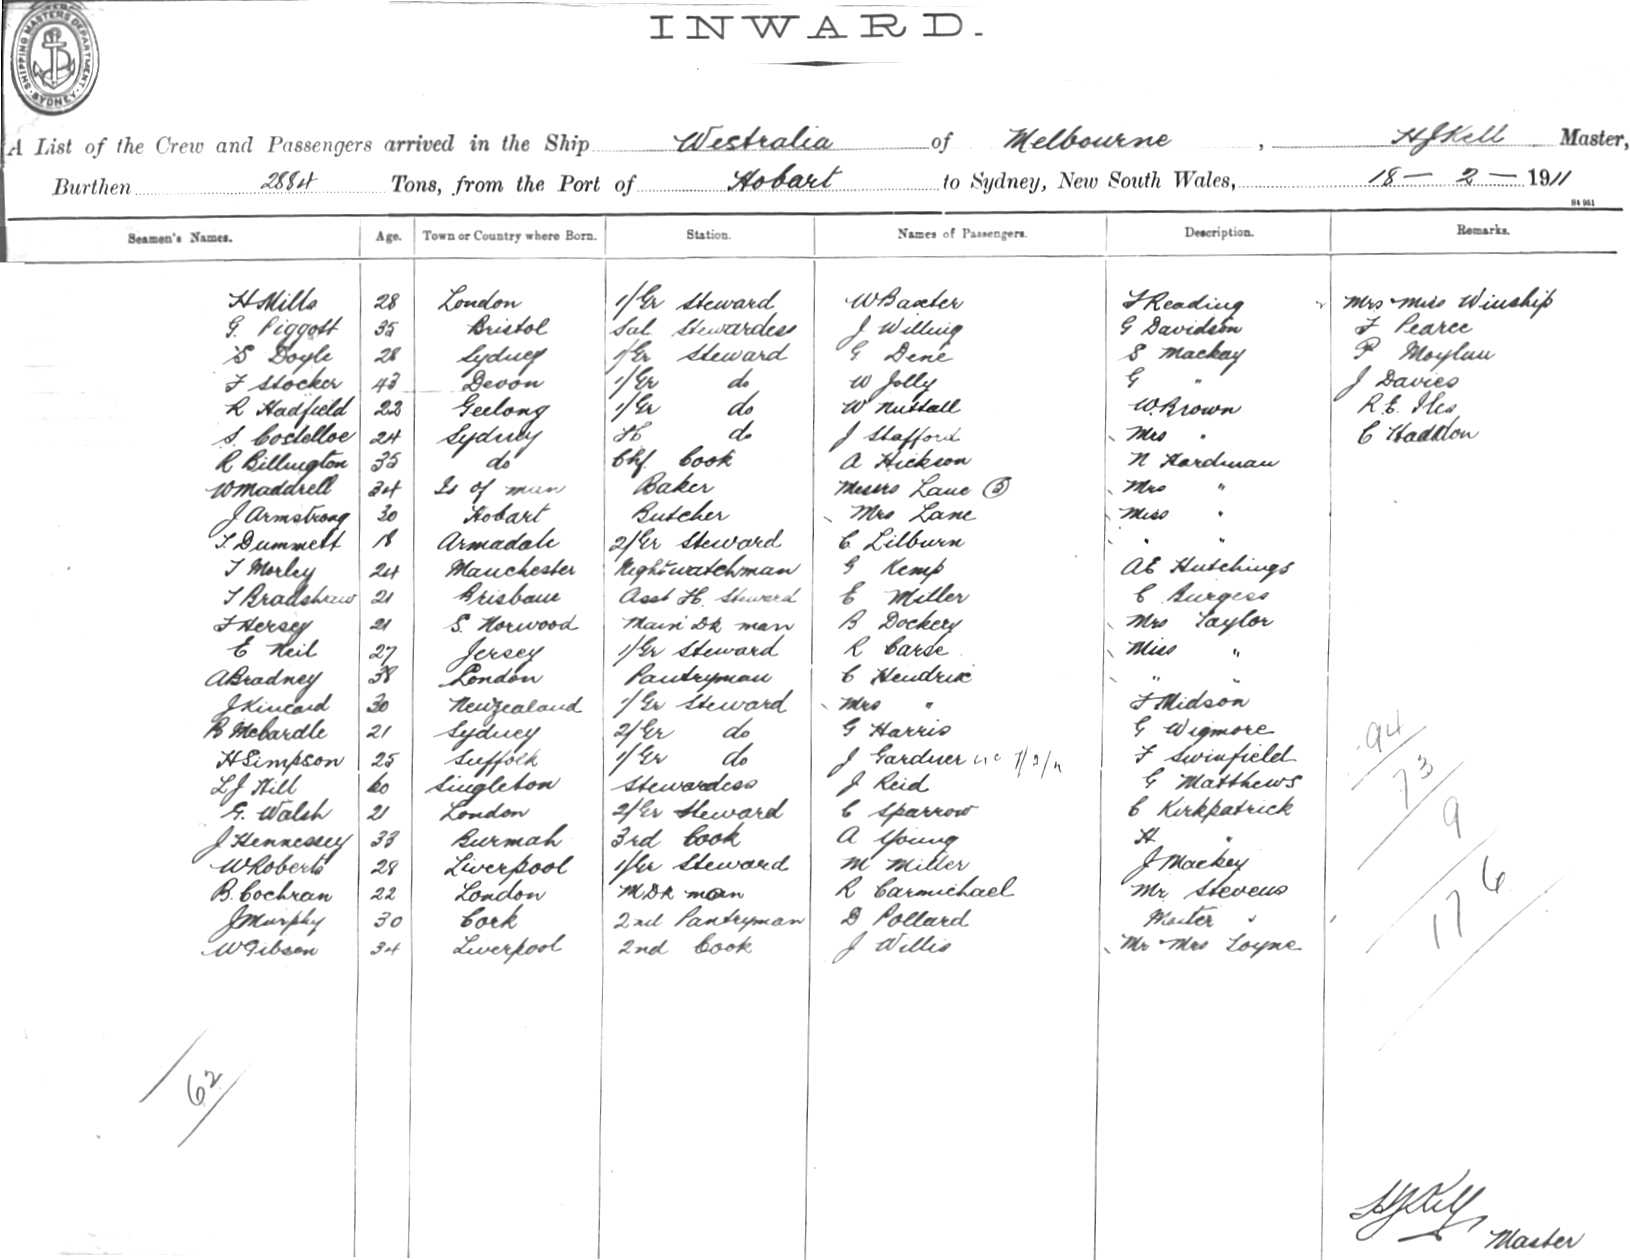 SHIPPING MASTERS DEPARTMENT. SYDNEY.
INWARD.
A List of the Crew and Passengers arrived in the Ship Westralia of Melbourne, HJKell Master,
Burthen 2884 Tons, from the Port of Hobart to Sydney, New South Wales, 18 — 2 — 1911
Seamen's Names. Age. Town or Country where Born. Station. Names of Passengers. Description. Remarks.
H Mills 28 London 1/Gr Steward W Baxter F Reading Mrs Miss Winship
G. Piggott 35 Bristol Sal Stewardess J Willing G Davidson F Pearce
S Doyle 28 Sydney 1/Gr Steward G Dene S Mackay P Moylan
F Stocker 43 Devon 1/Gr do W Jolly G " J Davies
R Hadfield 22 Geelong 1/Gr do W Nuttall W.Brown R E. Iles
S. Costelloe 24 Sydney H do J Stafford Mrs " C Haddon
R Billington 35 do Chf. Cook A Hickson N Hardman
W Maddrell 34 Is of man Baker Messrs Lane (3) Mrs "
J Armstrong 30 Hobart Butcher Mrs Lane Miss "
T Dummett 18 Armadale 2/Gr Steward C Lilburn " "
T Morley 24 Manchester Nightwatchman G Kemp AE Hutchings
T Bradshaw 21 Brisbane Asst H. Steward E Miller C Burgess
F Hersey 21 S. Norwood Main Dk man B Dockery Mrs Taylor
E Neil 27 Jersey 1/Gr Steward R Carse Miss "
A Bradney 38 London Pantryman C Hendrie " "
J Kincard 30 Newzealand 1/Gr Steward Mrs " F Midson
B McCardle 21 Sydney 2/Gr do G Harris G Wigmore
H Simpson 25 Suffolk 1/Gr do J Gardner F Swinfield
L J Hill 60 Singleton Stewardess J Reid G Matthews
G. Walsh 21 London 2/Gr Steward C Sparrow C Kirkpatrick
J Hennessey 33 Burmah 3rd Cook A Young H "
W Roberts 28 Liverpool 1/Gr Steward M Miller J Mackey
B. Cochran 22 London M Dk man R Carmichael Mr Stevens
J Murphy 30 Cork 2nd Pantryman D Pollard Master "
W Gibson 34 Liverpool 2nd Cook J Willis Mr Mrs Loyne
94
73
9
176
62
HJKell
Master